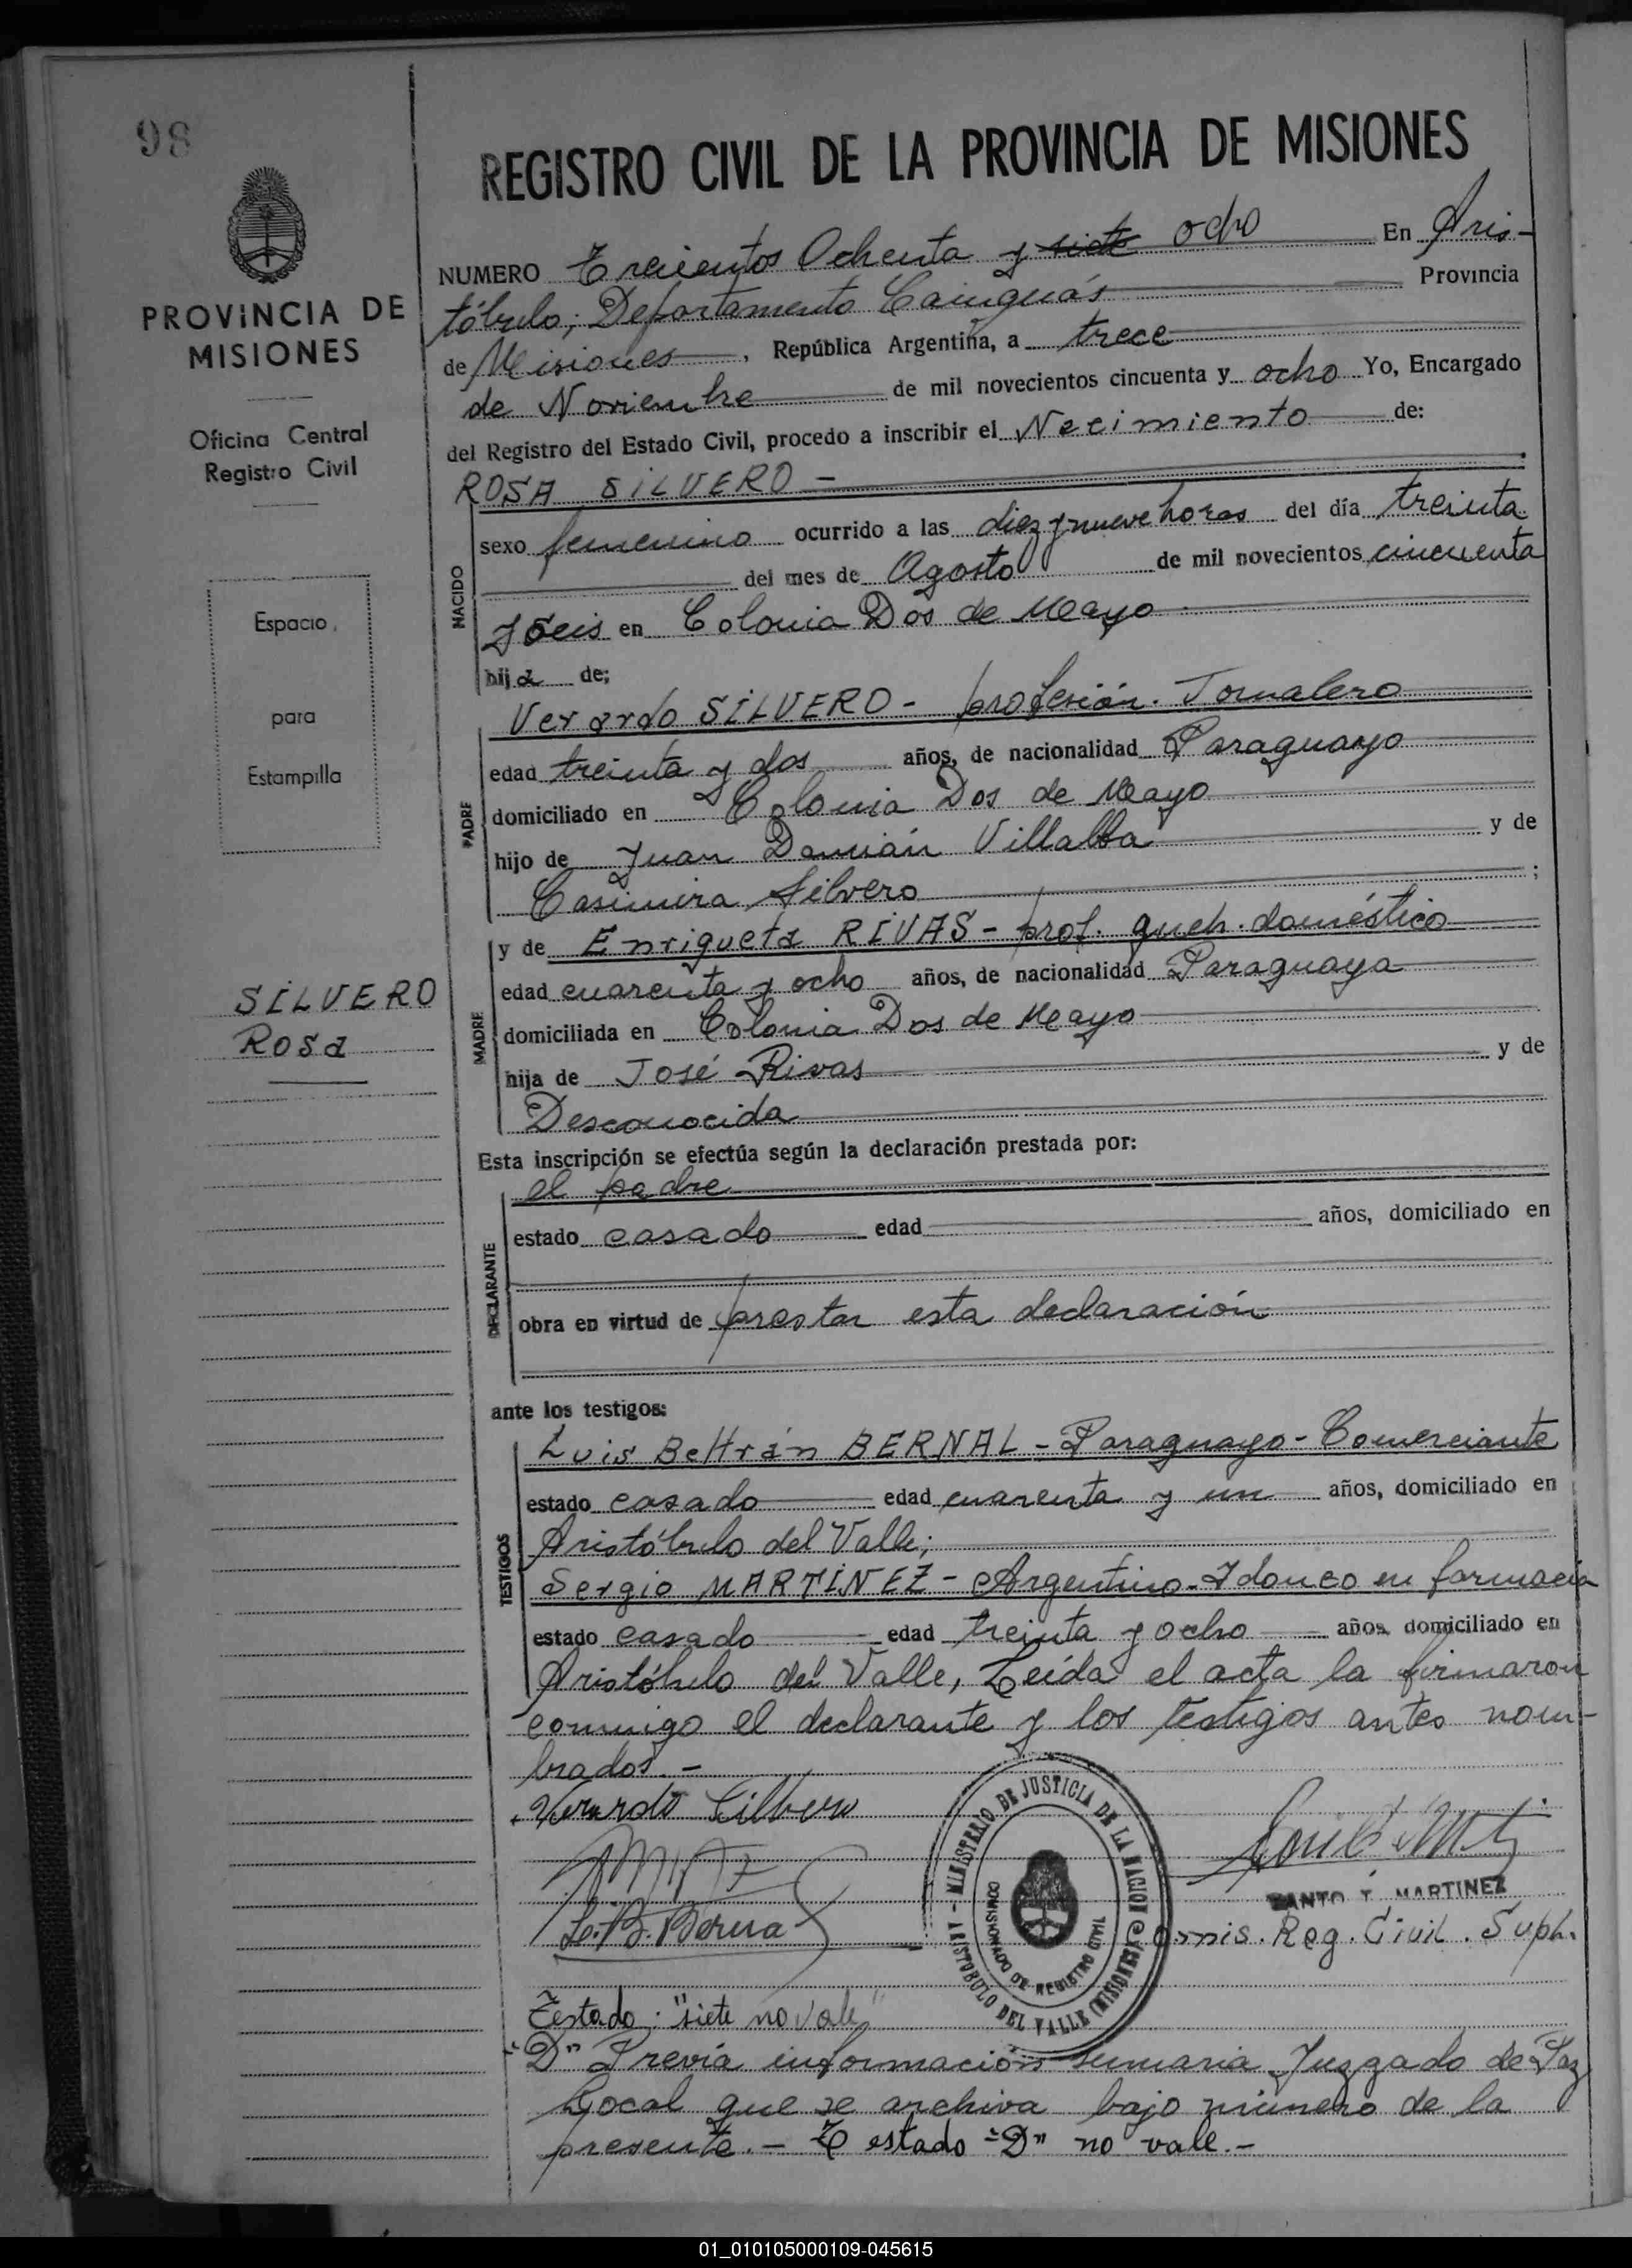 98
REGISTRO CIVIL DE LA PROVINCIA DE MISIONES
PROVINCIA DE
MISIONES
Oficina Central
Registro Civil
Espacio
para
Estampilla
SILVERO
Rosa
NUMERO Treicientos Ochenta y siete ocho En Aris-
tóbulo; Departamento Cainguás Provincia
de Misiones, República Argentina, a trece
de Noviembre de mil novecientos cincuenta y ocho Yo, Encargado
del Registro del Estado Civil, procedo a inscribir el Necimiento de:
ROSA SILVERO -
NACIDO
sexo femenino ocurrido a las diez y nueve horas del día treinta
del mes de Agosto de mil novecientos cincuenta
y seis en Colonia Dos de Mayo
hija de;
PADRE
Verardo SILVERO - profesión. Jornalero
edad treinta y dos años, de nacionalidad Paraguayo
domiciliado en Colonia Dos de Mayo
hijo de Juan Damián Villalba y de
Casimira Silvero ;
MADRE
y de Enriqueta RIVAS - prof. queh. doméstico
edad cuarenta y ocho años, de nacionalidad Paraguaya
domiciliada en Colonia Dos de Mayo
hija de José Rivas y de
Desconocida
Esta inscripción se efectúa según la declaración prestada por:
DECLARANTE
el padre
estado casado edad años, domiciliado en
obra en virtud de prestar esta declaración
ante los testigos:
TESTIGOS
Luis Beltrán BERNAL - Paraguayo - Comerciante
estado casado edad cuarenta y un años, domiciliado en
Aristóbulo del Valle;
Sergio MARTINEZ - Argentino - Idoneo en farmacia
estado casado edad treinta y ocho años, domiciliado en
Aristóbulo del Valle, Leída el acta la firmaron
conmigo el declarante y los testigos antes nom-
brados. -
MINISTERIO DE JUSTICIA DE LA NACION
ARISTOBULO DEL VALLE (MISIONES)
COMISIONADO DE REGISTRO CIVIL
MARTINEZ
Comis. Reg. Civil. Suph.
Testado: "siete no vale"
"D" Previa información sumaria Juzgado de Paz
Local que se archiva bajo número de la
presente. - Testado "D" no vale. -
01_010105000109-045615